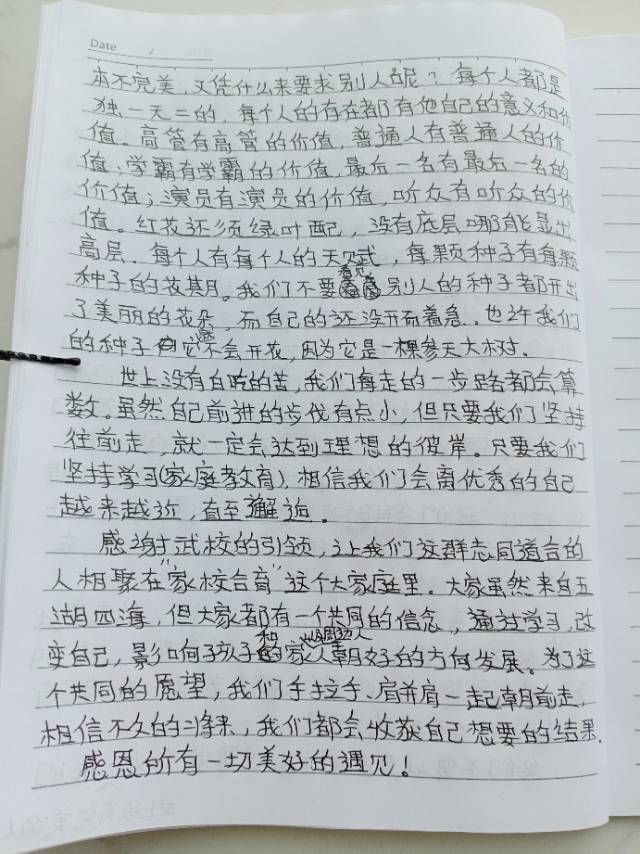 Date /
本不完美，又凭什么来要求别人呢？每个人都是
独一无二的，每个人的存在都有他自己的意义和价
值。高管有高管的价值，普通人有普通人的价
值；学霸有学霸的价值，最后一名有最后一名的
价值；演员有演员的价值，听众有听众的价
值。红花还须绿叶配，没有底层哪能显出
高层。每个人有每个人的天赋，每颗种子有每颗
种子的花期。我们不要看见别人的种子都开出
了美丽的花朵，而自己的还没开而着急，也许我们
的种子永远不会开花，因为它是一棵参天大树。
世上没有白吃的苦，我们每走的一步路都会算
数。虽然自己前进的步伐有点小，但只要我们坚持
往前走，就一定会达到理想的彼岸。只要我们
坚持学习(家庭教育)，相信我们会离优秀的自己
越来越近，直至邂逅。
感谢武校的引领，让我们这群志同道合的
人相聚在"家校合育"这个大家庭里。大家虽然来自五
湖四海，但大家都有一个共同的信念，通过学习，改
变自己，影响孩子和家人朝好的方向发展。为了这
个共同的愿望，我们手拉手、肩并肩一起朝前走，
相信不久的将来，我们都会收获自己想要的结果。
感恩所有一切美好的遇见！